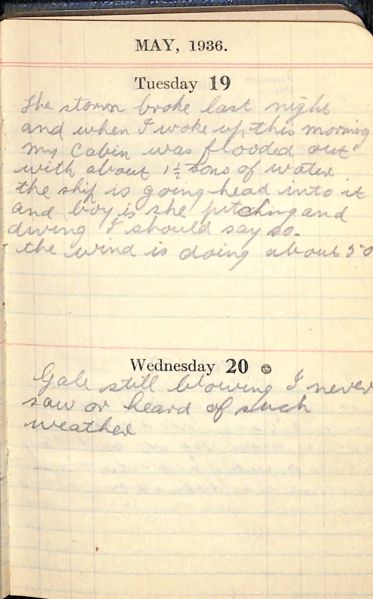 MAY, 1936.
Tuesday 19
The storm broke last night
and when I woke up this morning
my cabin was flooded out
with about 1½ tons of water
the ship is going head into it
and boy is she pitching and
diving I should say so.
the wind is doing about 50
Wednesday 20
Gale still blowing I never
saw or heard of such
weather